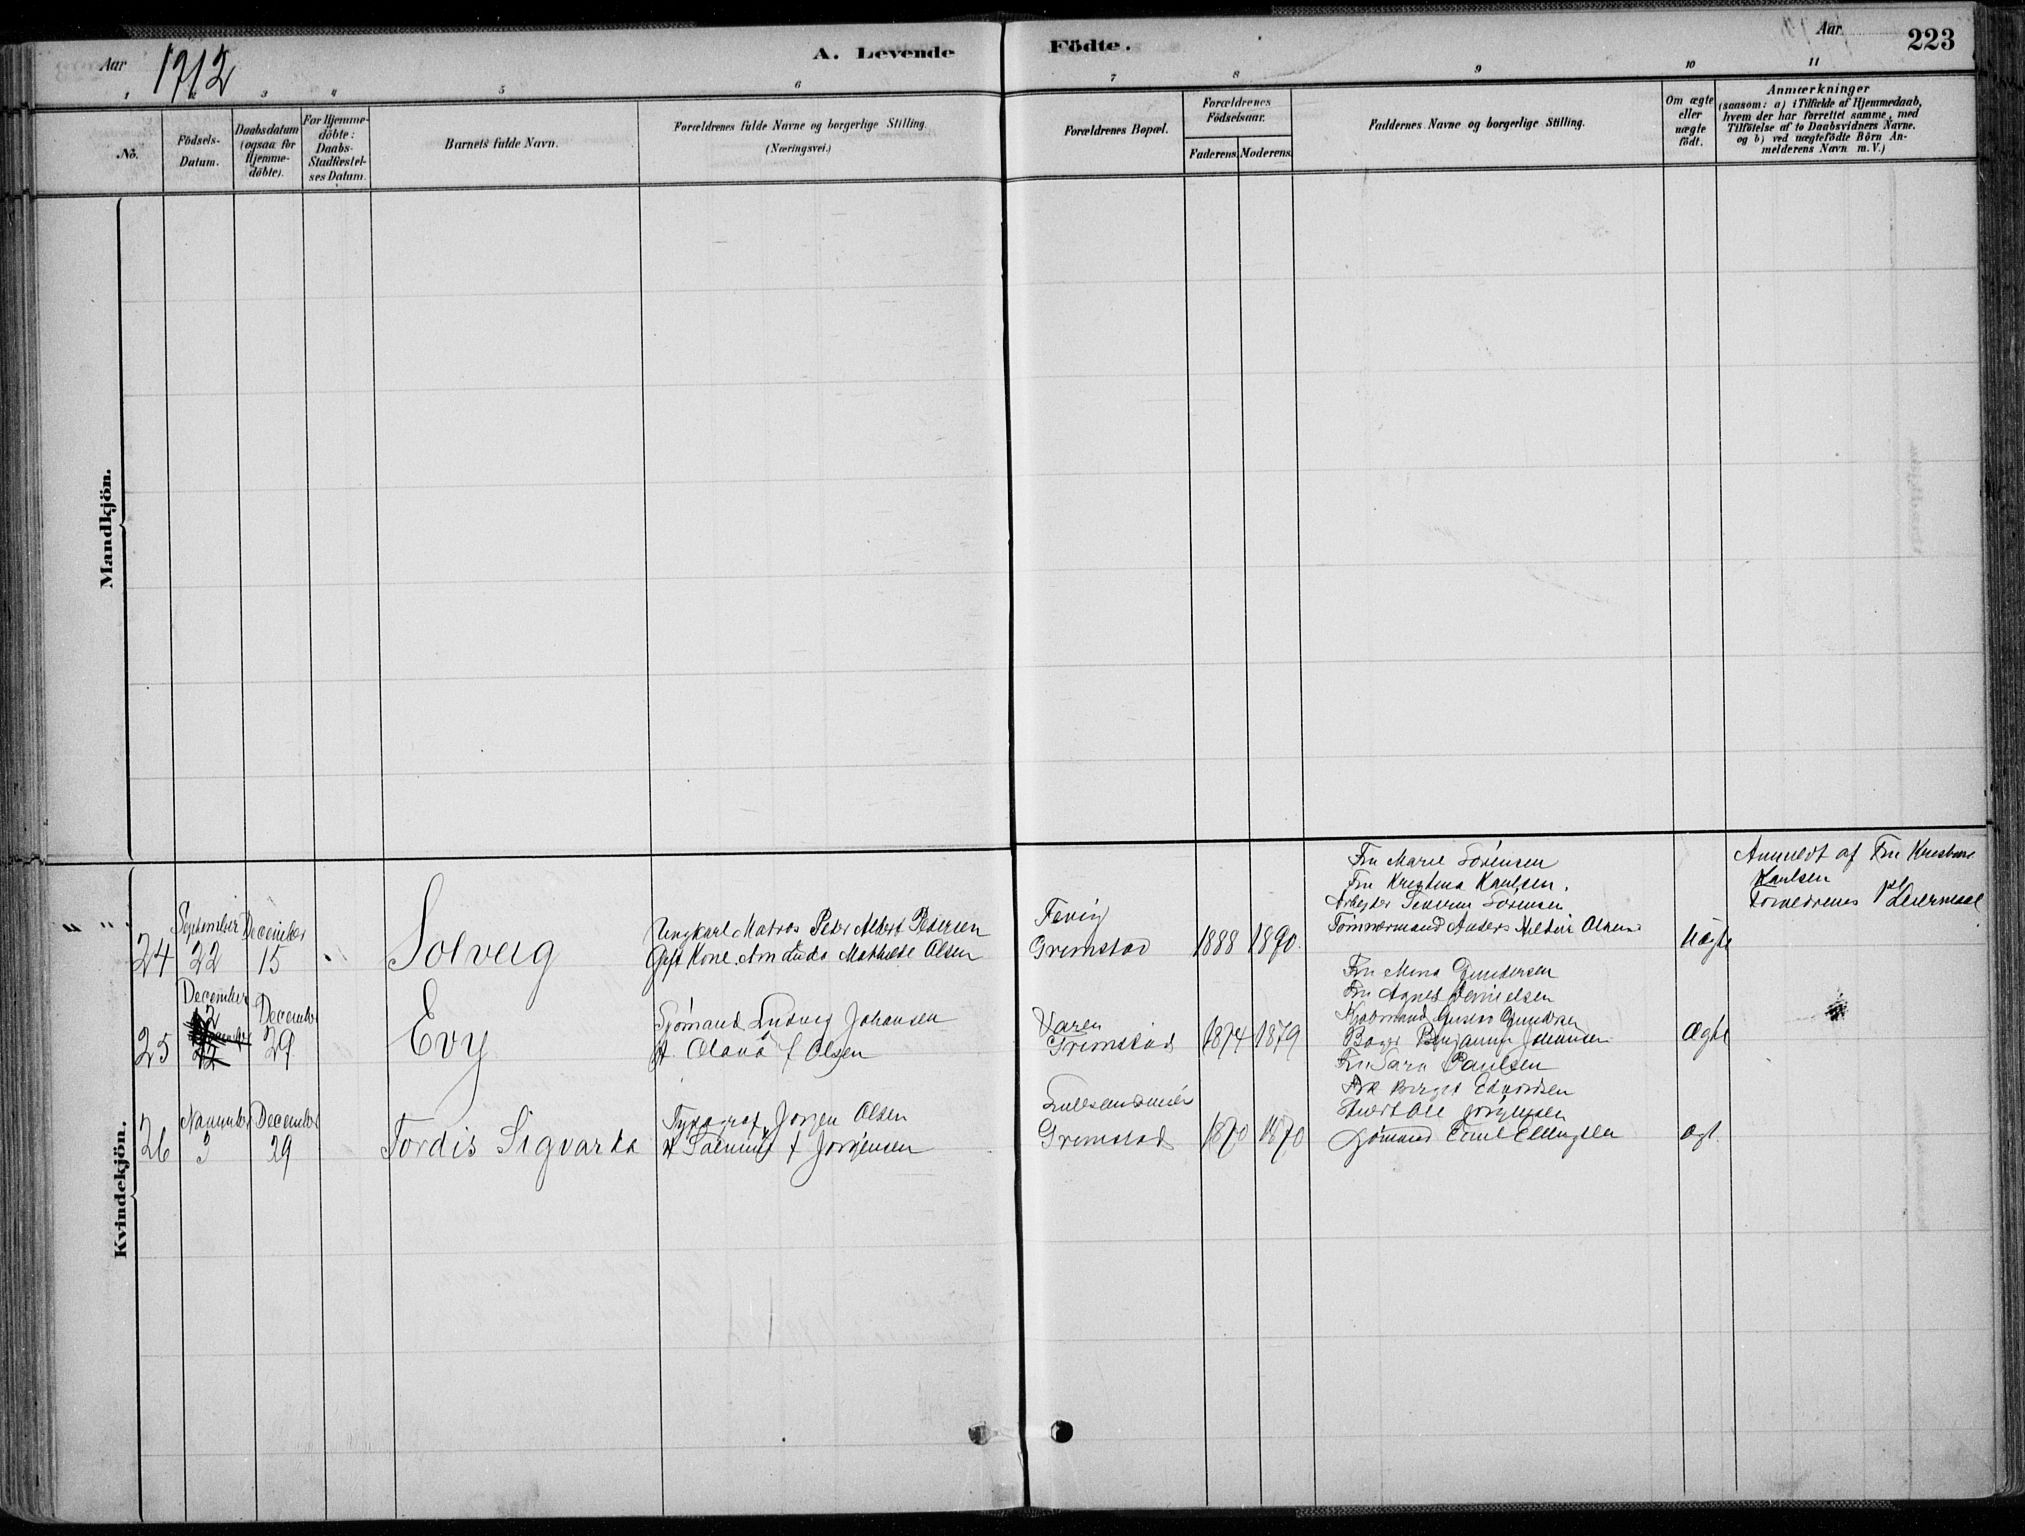 Aar 1912 A. Levende Födte. Aar 223
1 2 3 4 5 6 7 8 9 10 11
No.
Födsels-
Datum.
Daabsdatum
(ogsaa for
Hjemme-
döbte).
For Hjemme-
döbte:
Daabs-
Stadfæstel-
ses Datum.
Barnets fulde Navn.
Forældrenes fulde Navne og borgerlige Stilling.
(Næringsvei.)
Forældrenes Bopæl.
Forældrenes
Födselsaar.
Faderens. Moderens.
Faddernes Navne og borgerlige Stilling.
Om ægte
eller
uægte
födt.
Anmærkninger
(saasom: a) i Tilfælde af Hjemmedaab,
hvem der har forrettet samme, med
Tilföielse af to Daabsvidners Navne.
og b) ved uægtefödte Börn An-
melderens Navn m. V.)
Mandkjön.
Kvindekjön.
24
September
22
December
15
Solveig
Ungkarl Matros Peter Albert Pedersen
Gift Kone Amanda Mathilde Olsen
Fevig
Grimstad
1888
1890.
Fru Marie Sörensen
Fru Kristina Kaulsen.
Arbeider Severin Sörensen
Tömmermand Anders Olsen
Uægte
Anmeldt af Fru
Kaulsen
Forældrenes 1st Leiermaal
25
December
12
December
29
Evy
Sjömand Ludvig Johansen
H. Olava f Olsen
Grimstad
1874
1879
Fru Mina Gundersen
Fru Agnes Danielsen
Kjöbmand Gustav Gundersen
Benjamin Johansen
Ægte
26
November
3
December
29
Tordis Sigvarda
Typograf Jörgen Olsen
H f Jörgensen
Grimstad
1870
1870
Fru Sara Paulsen
Frk Borgit Edvardsen
Ole Jörgensen
Sjömand Emil Ellingsen
Ægt.